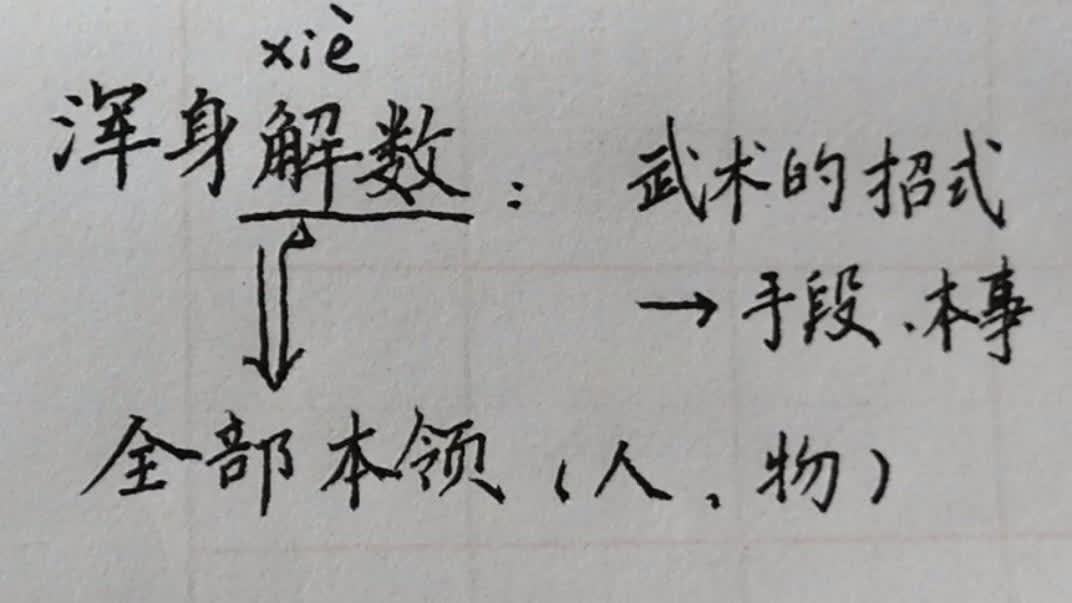 xiè
浑身解数：武术的招式
→手段、本事
全部本领（人、物）